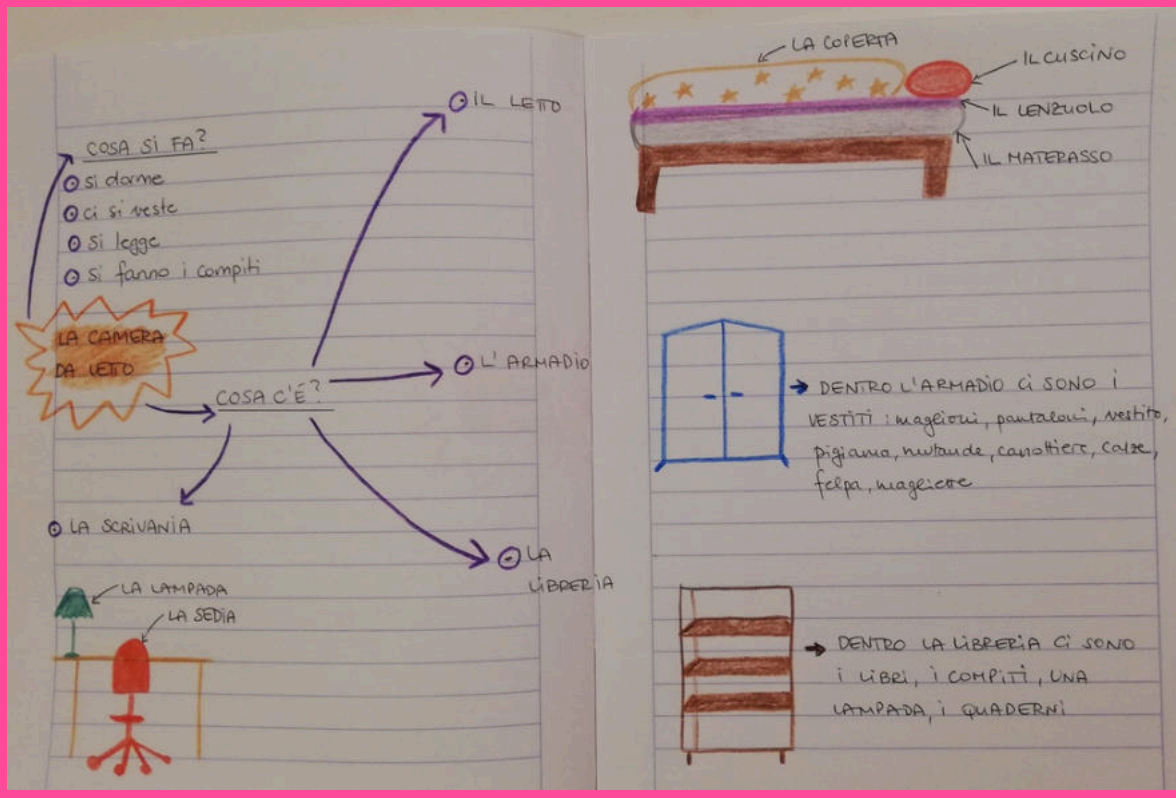 COSA SI FA?
si dorme
ci si veste
si legge
si fanno i compiti
LA CAMERA
DA LETTO
COSA C'É?
IL LETTO
L'ARMADIO
LA
LIBRERIA
LA SCRIVANIA
LA LAMPADA
LA SEDIA
LA COPERTA
IL CUSCINO
IL LENZUOLO
IL MATERASSO
DENTRO L'ARMADIO CI SONO I
VESTITI: maglioni, pantaloni, vestito,
pigiama, mutande, canottiere, calze,
felpa, magliette
DENTRO LA LIBRERIA CI SONO
I LIBRI, I COMPITI, UNA
LAMPADA, I QUADERNI